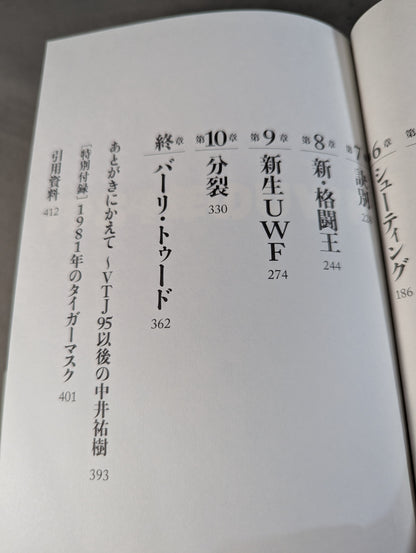 第6
シューティング 186
第7章 訣別
第8章 新・格闘王 244
第9章 新生UWF 274
第10章 分裂 330
終章 バーリ・トゥード 362
あとがきにかえて ～VTJ95以後の中井祐樹 393
［特別付録］1981年のタイガーマスク 401
引用資料 412